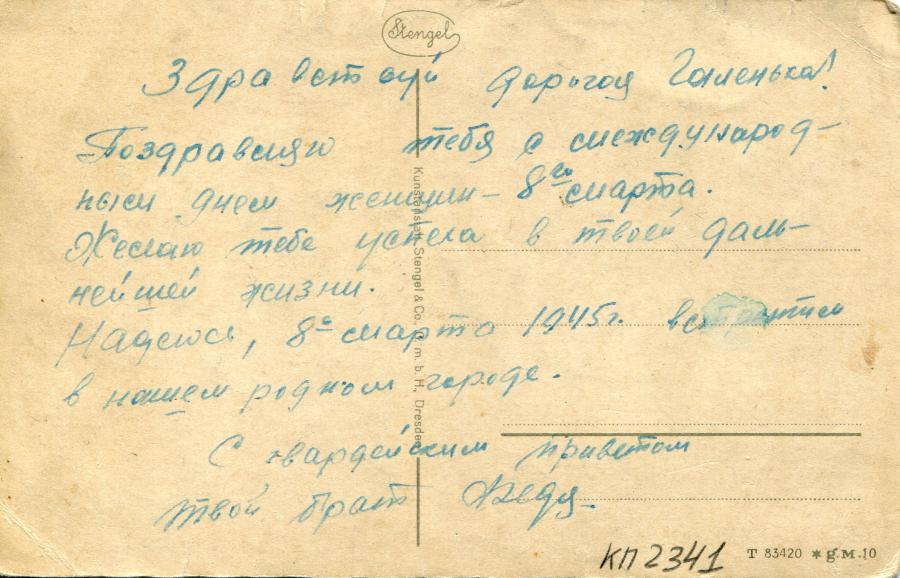 Stengel
Здравствуй дорогая Галенька!
Поздравляю тебя с международ-
ным днем женщин – 8го марта.
Желаю тебе успеха в твоей даль-
нейшей жизни.
Надеюсь, 8е марта 1945г. встретим
в нашем родном городе.
С гвардейским приветом
твой брат Федя.
Kunstanstalt Stengel & Co. G. m. b. H., Dresden
КП 2341
T 83420 ✱ g.M.10